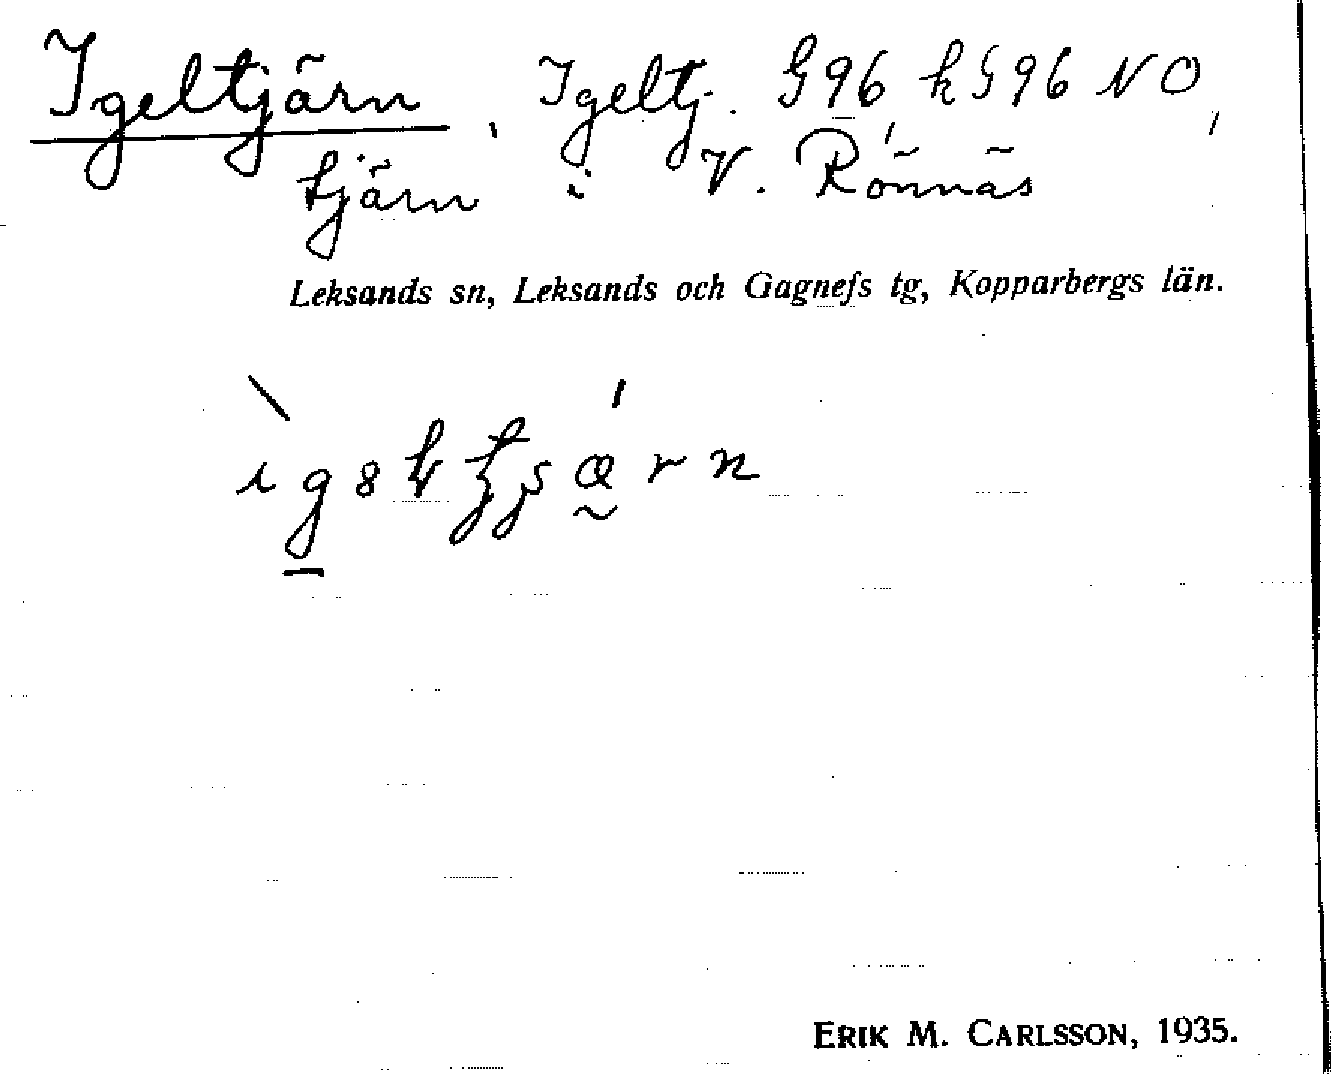 Igeltjärn, Igeltj. G96 k G96 NO,
tjärn i V. Rönnäs
Leksands sn, Leksands och Gagnefs tg, Kopparbergs län.
ERIK M. CARLSSON, 1935.